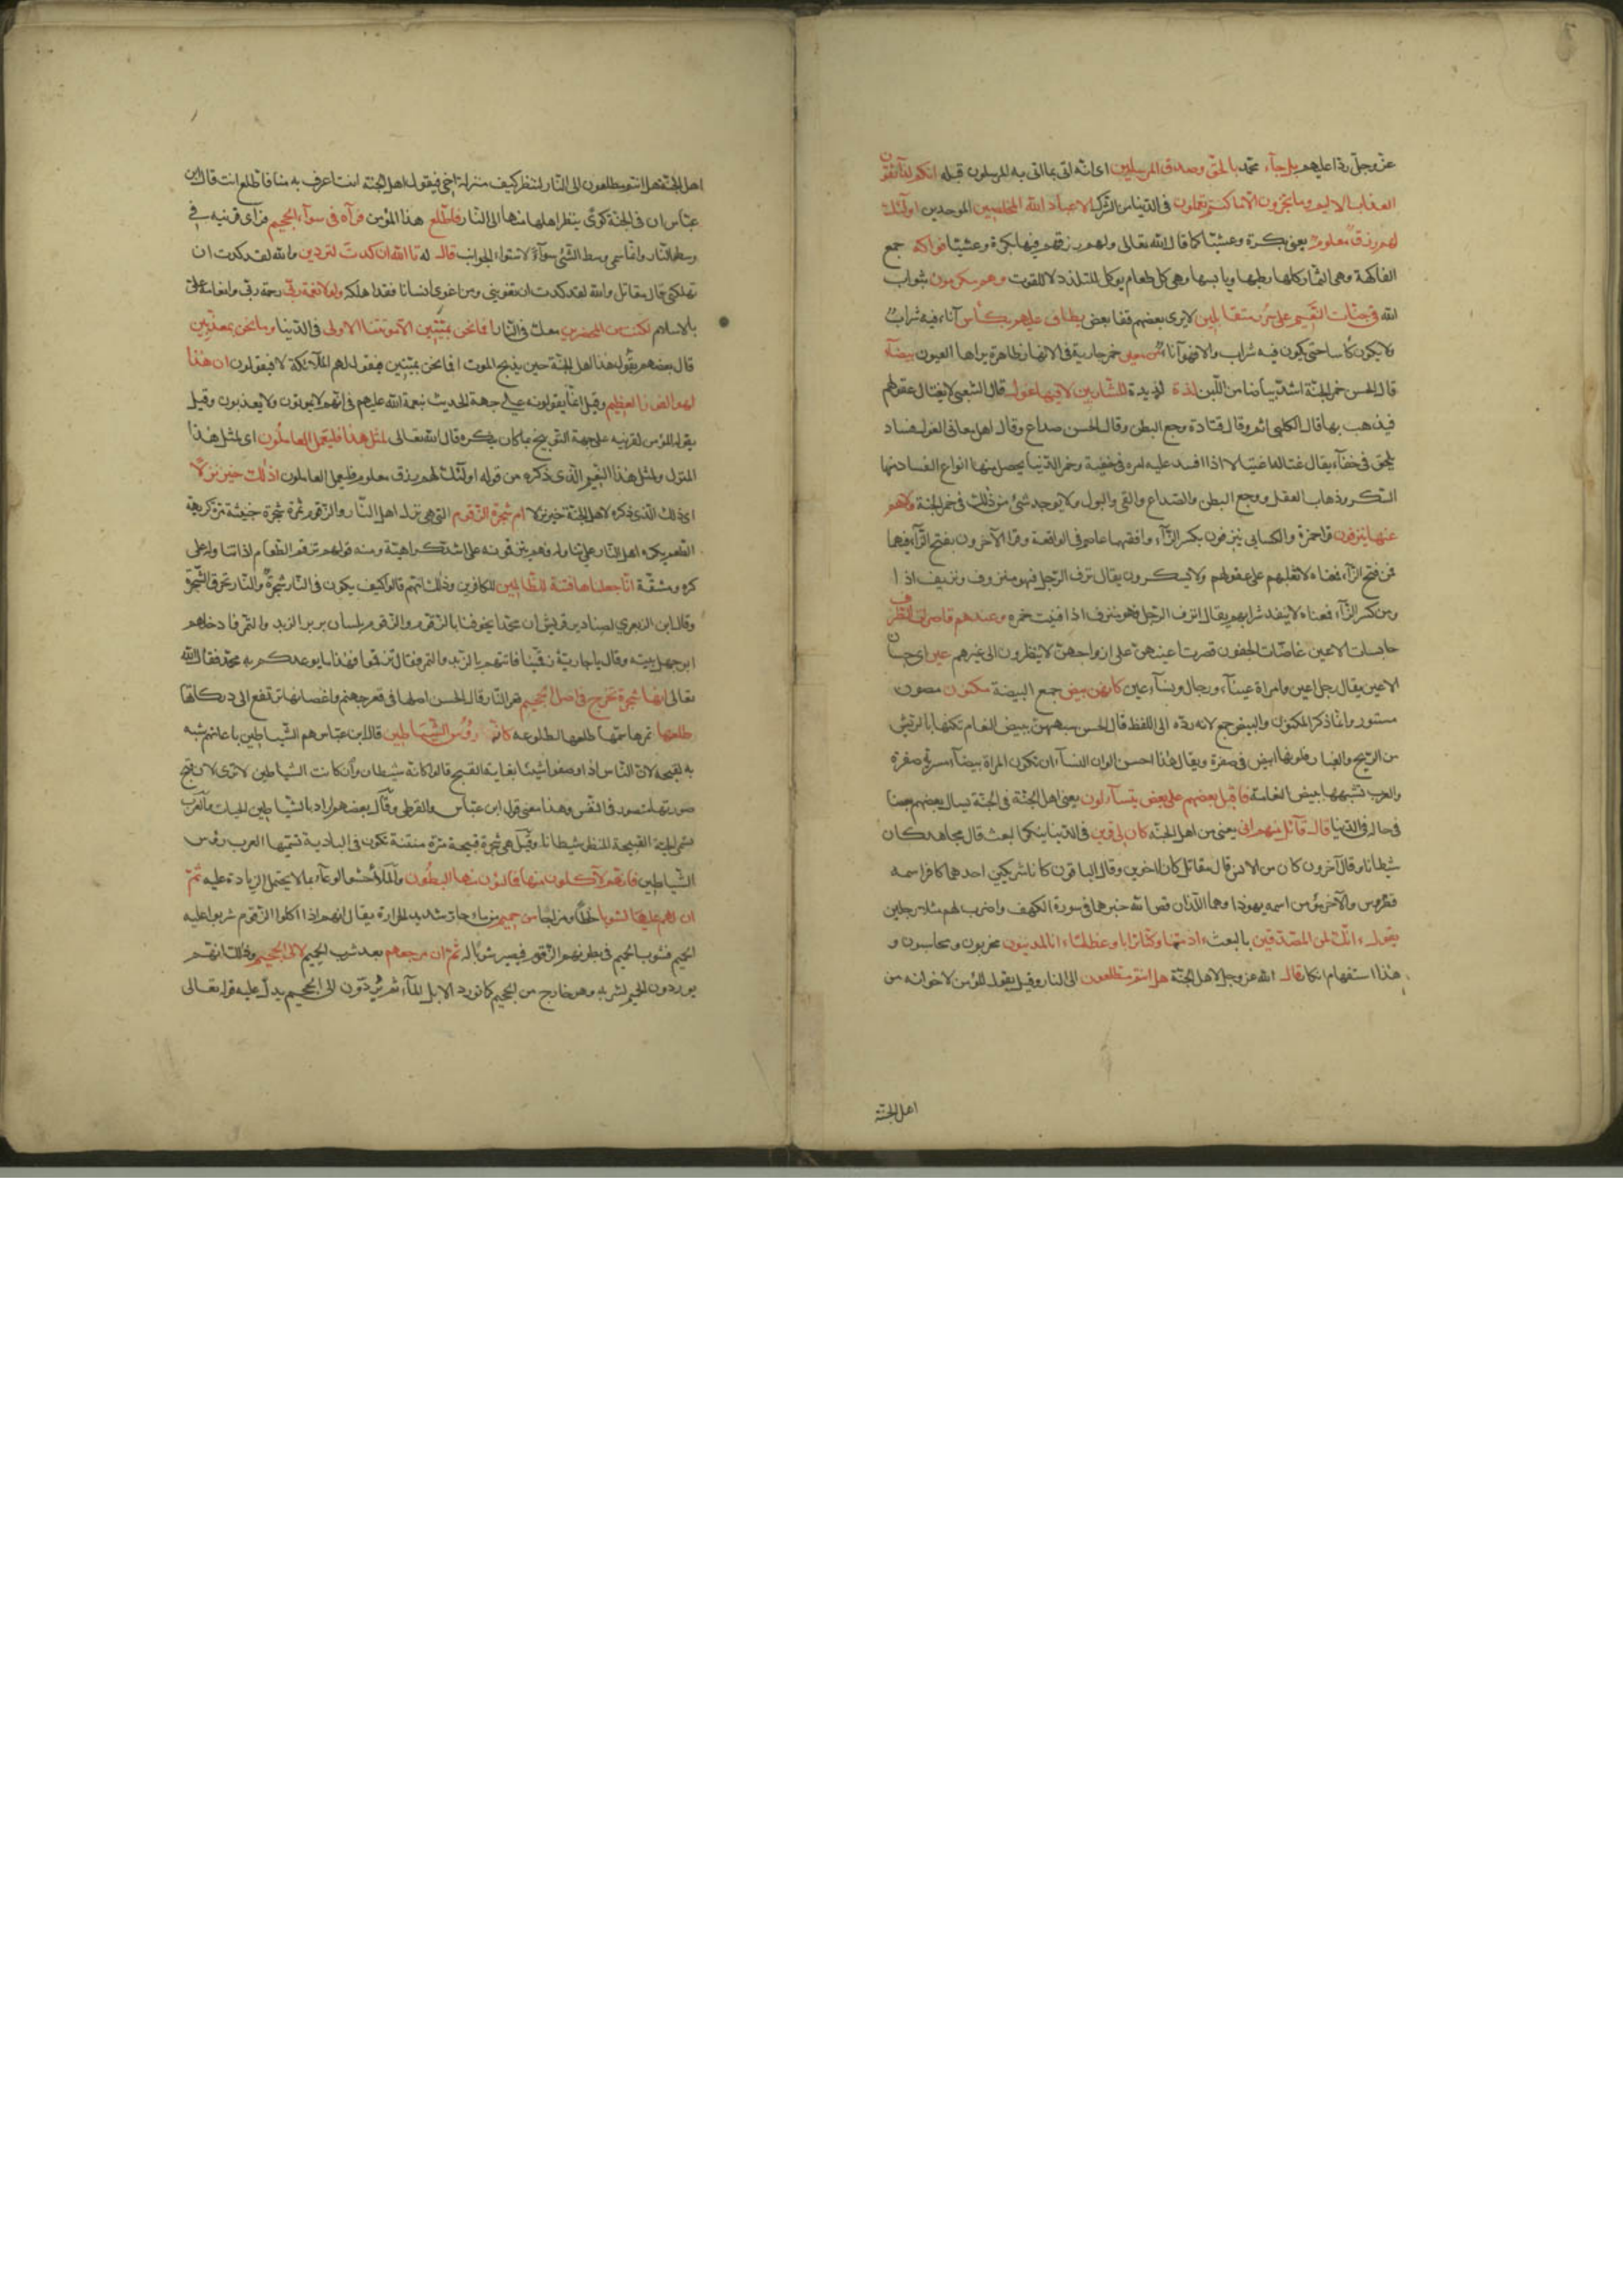 عز وجل ردا عليهم بل جاء محمد بالحق وصدق المرسلين اى انه اتى بما اتى به المرسلون قبله انكم لذآئقون
العذاب الاليم وما تجزون الا ما كنتم تعملون فى الدنيا من الشرك الا عباد الله المخلصين الموحدين اولٓئك
لهم رزق معلوم يعنى بكرة وعشيا كما قال الله تعالى ولهم رزقهم فيها بكرة وعشيا فواكه جمع
الفاكهة وهى الثمار كلها رطبها ويابسها وهى كل طعام يوكل للتلذذ لا للقوت وهم مكرمون بثواب
الله فى جنات النعيم على سرر متقابلين لا يرى بعضهم قفا بعض يطاف عليهم بكأس آناء فيه شراب
ولا يكون كأسا حتى يكون فيه شراب والا فهو آناء من معين خمر جارية فى الانهار ظاهرة يراها العيون بيضآء
قال الحسن خمر الجنة اشد بياضا من اللبن لذة لذيذة للشاربين لا فيها غول قال الشعبى لا يغتال عقولهم
فيذهب بها قال الكلبى اثم وقال قتادة وجع البطن وقال الحسن صداع وقال اهل معانى الغول فساد
يلحق فى خفآء يقال غتاله اغتيالا اذا افسد عليه امره فى خفية وخمر الدنيا يحصل منها انواع الفساد منها
السكر وذهاب العقل ووجع البطن والصداع والقى والبول ولا يوجد شئ من ذلك فى خمر الجنة ولا هم
عنها ينزفون قرا حمزة والكسائى ينزفون بكسر الزآء وافقهما عاصم فى الواقعة وقرا الآخرون بفتح الزآء فيهما
فمن فتح الزآء فمعناه لا تغلبهم على عقولهم ولا يسكرون يقال نزف الرجل فهو منزوف ونزيف اذا
ومن كسر الزآء فمعناه لا ينفد شرابهم يقال انزف الرجل فهو منزف اذا فنيت خمره وعندهم قاصرات الطرف
حابسات الاعين غاضات الجفون قصرت اعينهن على ازواجهن لا ينظرون الى غيرهم عين اى حسان
الاعين يقال رجل اعين وامراة عينآء ورجال ونسآء عين كانهن بيض جمع البيضة مكنون مصون
مستور وانما ذكر المكنون والبيض جمع لانه رده الى اللفظ قال الحسن شبههن ببيض النعام تكنها بالريش
من الريح والغبار فلونها ابيض فى صفرة ويقال هذا احسن الوان النسآء ان تكون المراة بيضآء مشربة صفرة
والعرب تشبهها ببيض النعامة فاقبل بعضهم على بعض يتسآءلون يعنى اهل الجنة فى الجنة يسال بعضهم بعضا
فى حاله فى الدنيا قال قآئل منهم انى يعنى من اهل الجنة كان لى قرين فى الدنيا ينكر البعث قال مجاهد كان
شيطانا وقال آخرون كان من الانس قال مقاتل كانا اخوين وقال الباقون كانا شريكين احدهما كافر اسمه
فطروس والآخر مؤمن اسمه يهودا وهما اللذان قص الله خبرهما فى سورة الكهف واضرب لهم مثلا رجلين
يقول ءانك لمن المصدقين بالبعث ءاذا متنا وكنا ترابا وعظاما ءانا لمدينون مجزيون ومحاسبون و
هذا استفهام انكار قال الله عز وجل لاهل الجنة هل انتم مطلعون الى النار وقيل يقول المؤمن لاخوانه من
اهل الجنة
اهل الجنة هل انتم مطلعون الى النار لننظر كيف منزلة اخى فيقول اهل الجنة انت اعرف به منا فاطلع انت قال ابن
عباس ان فى الجنة كوى ينظر اهلها منها الى النار فاطلع هذا المؤمن فرآه فى سوآء الجحيم فرآى قرينه فى
وسط النار وانما سمى وسط الشئ سوآء لاستواء الجوانب قال له تا الله ان كدت لتردين والله لقد كدت ان
تهلكنى قال مقاتل والله لقد كدت ان تغوينى ومن اغوى انسانا فقد اهلكه ولولا نعمة ربى رحمة ربى وانعامه على
بالاسلام لكنت من المحضرين معك فى النار افما نحن بميتين الا موتتنا الاولى فى الدنيا وما نحن بمعذبين
قال بعضهم يقول هذا اهل الجنة حين يذبح الموت افما نحن بميتين فيقول لهم الملآئكة لا فيقولون ان هذا
لهو الفوز العظيم وقيل انما يقولونه على جهة الحديث بنعمة الله عليهم فى انهم لا يموتون ولا يعذبون وقيل
يقوله المؤمن لقرينه على جهة التوبيخ بما كان ينكره قال الله تعالى لمثل هذا فليعمل العاملون اى لمثل هذا
المنزل ولمثل هذا النعيم الذى ذكره من قوله اولئك لهم رزق معلوم فليعمل العاملون اذلك خير نزلا
اى ذلك الذى ذكره لاهل الجنة خير نزلا ام شجرة الزقوم التى هى نزل اهل النار والزقوم ثمرة شجرة خبيثة مرة كريهة
الطعم يكره اهل النار على تناوله فهم يتزقونه على اشد كراهية ومنه قولهم تزقم الطعام اذا تناوله على
كره ومشقة انا جعلناها فتنة للظالمين للكافرين وذلك انهم قالوا كيف يكون فى النار شجرة والنار تحرق الشجرة
وقال ابن الزبعرى لصناديد قريش ان محمدا يخوفنا بالزقوم والزقوم بلسان بربر الزبد والتمر فادخلهم
ابو جهل بيته وقال يا جارية زقمينا فاتتهم بالزبد والتمر فقال تزقموا فهذا ما يوعدكم به محمد فقال الله
تعالى انها شجرة تخرج فى اصل الجحيم قعر النار قال الحسن اصلها فى قعر جهنم واغصانها ترتفع الى دركاتها
طلعها ثمرها سمى طلعا لطلوعه كانه رؤس الشياطين قال ابن عباس هم الشياطين باعيانهم شبه
به لقبحه لان الناس اذا وصفوا شيئا بغاية القبح قالوا كانه شيطان وان كانت الشياطين لا ترى لان قبح
صورتها متصور فى النفس وهذا معنى قول ابن عباس والقرظى وقال بعضهم اراد بالشياطين الحيات والعرب
يسمى الحية القبيحة المنظر شيطانا وقيل هى شجرة قبيحة مرة منتنة تكون فى البادية تسميها العرب رؤس
الشياطين فانهم لآكلون منها فمالؤن منها البطون والملأ حشو الوعآء بما لا يحتمل الزيادة عليه ثم
ان لهم عليها لشوبا خلطا ومزاجا من حميم من ماء حار شديد الحرارة يقال انهم اذا اكلوا الزقوم شربوا عليه
الحميم فيشوب الحميم فى بطونهم الزقوم فيصير شوبا له ثم ان مرجعهم بعد شرب الحميم لالى الجحيم وذلك انهم
يوردون الحميم لشربه وهو خارج من الجحيم كما تورد الابل المآء ثم يردون الى الجحيم يدل عليه قوله تعالى